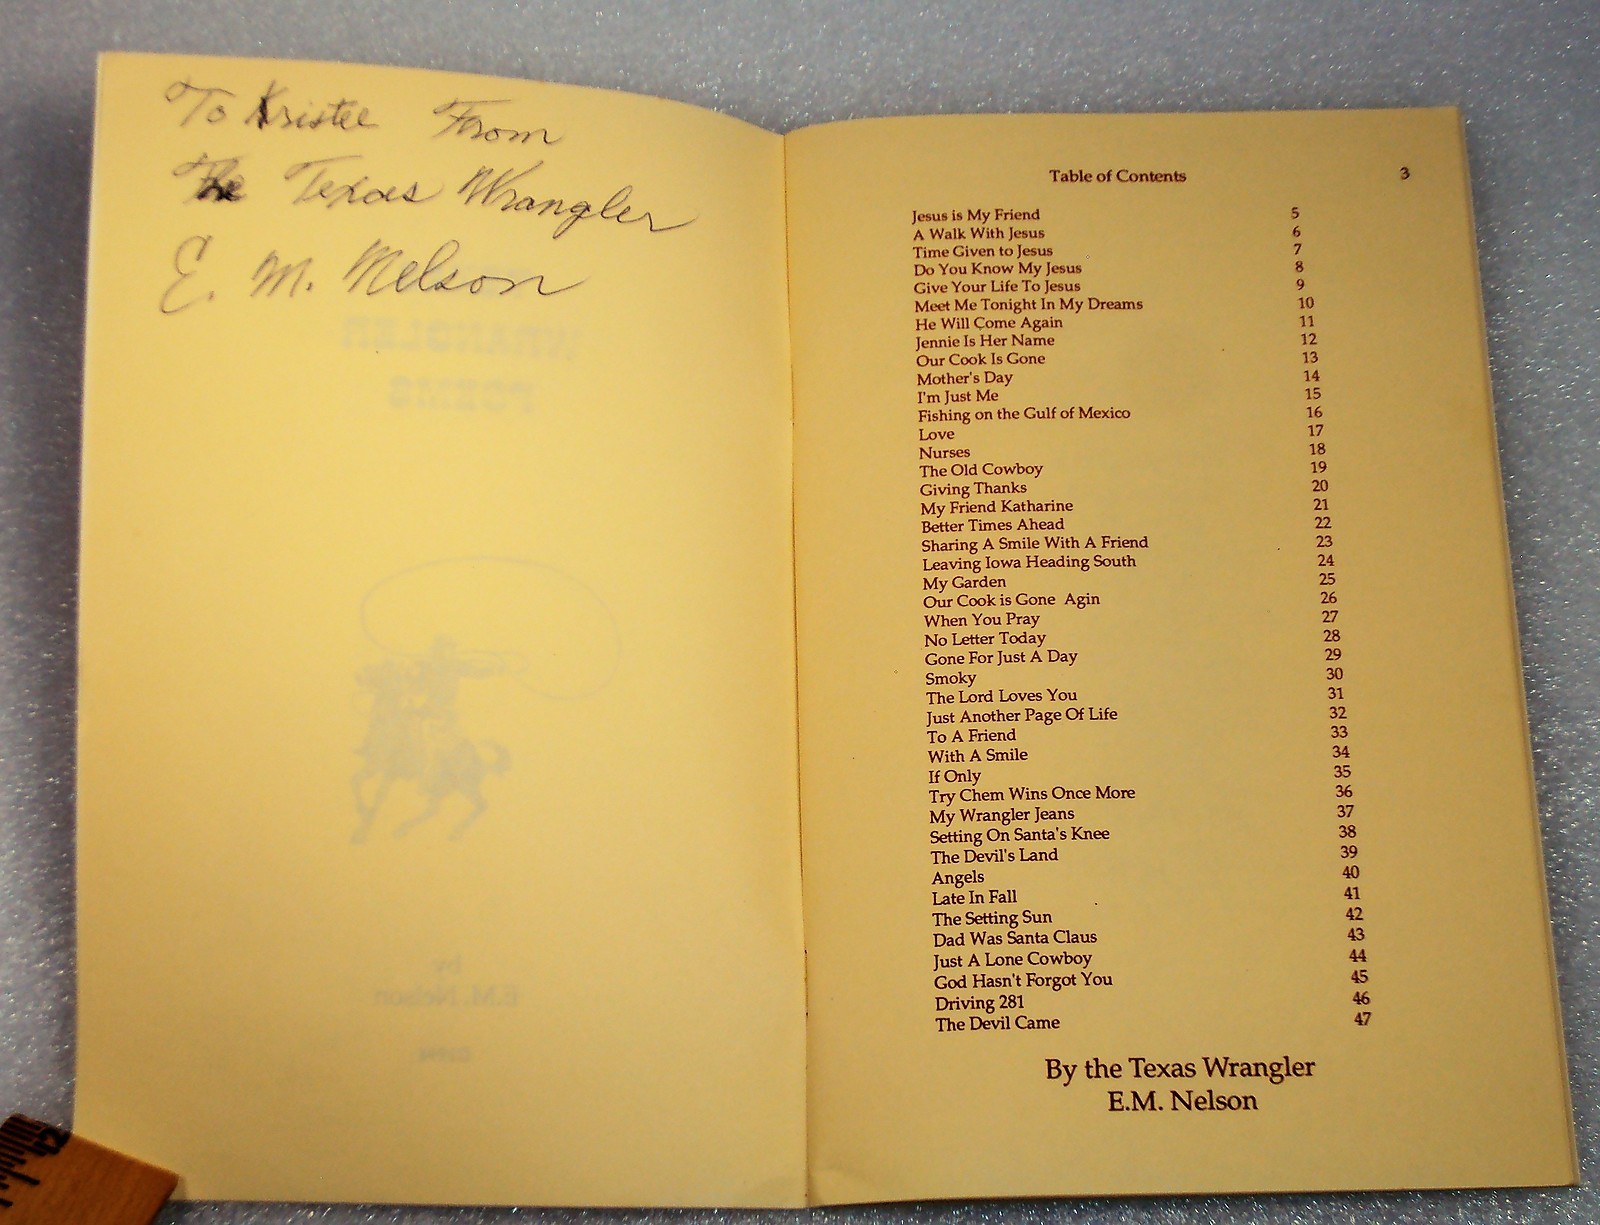 To Kristee From
The Texas Wrangler
E. M. Nelson
WRANGLER
POEMS
by
E.M. Nelson
Table of Contents 3
Jesus is My Friend 5
A Walk With Jesus 6
Time Given to Jesus 7
Do You Know My Jesus 8
Give Your Life To Jesus 9
Meet Me Tonight In My Dreams 10
He Will Come Again 11
Jennie Is Her Name 12
Our Cook Is Gone 13
Mother's Day 14
I'm Just Me 15
Fishing on the Gulf of Mexico 16
Love 17
Nurses 18
The Old Cowboy 19
Giving Thanks 20
My Friend Katharine 21
Better Times Ahead 22
Sharing A Smile With A Friend 23
Leaving Iowa Heading South 24
My Garden 25
Our Cook is Gone Agin 26
When You Pray 27
No Letter Today 28
Gone For Just A Day 29
Smoky 30
The Lord Loves You 31
Just Another Page Of Life 32
To A Friend 33
With A Smile 34
If Only 35
Try Chem Wins Once More 36
My Wrangler Jeans 37
Setting On Santa's Knee 38
The Devil's Land 39
Angels 40
Late In Fall 41
The Setting Sun 42
Dad Was Santa Claus 43
Just A Lone Cowboy 44
God Hasn't Forgot You 45
Driving 281 46
The Devil Came 47
By the Texas Wrangler
E.M. Nelson